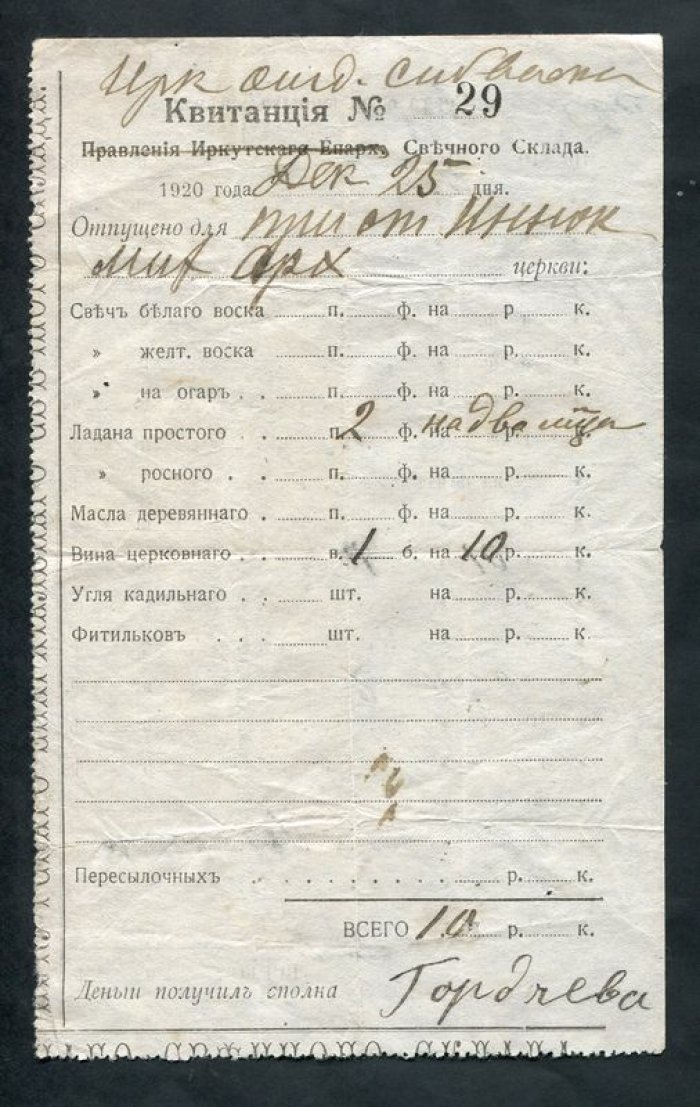 Ирк
Квитанція № 29
Правленія Иркутскаго Епарх. Свѣчного Склада.
1920 года Дек 25 дня.
Отпущено для Иннок
Мих Арх церкви:
Свѣчъ бѣлаго воска п. ф. на р. к.
» желт. воска п. ф. на р. к.
» на огаръ . . п. ф. на р. к.
Ладана простого . . п. 2 ф. на р.
» росного . . п. ф. на р. к.
Масла деревяннаго . п. ф. на р. к.
Вина церковнаго . . в. 1 б. на 10 р. к.
Угля кадильнаго . . шт. на р. к.
Фитильковъ . . . шт. на р. к.
Пересылочныхъ . . . . . . . . . р. к.
ВСЕГО 10 р. к.
Деньги получилъ сполна Гордчева